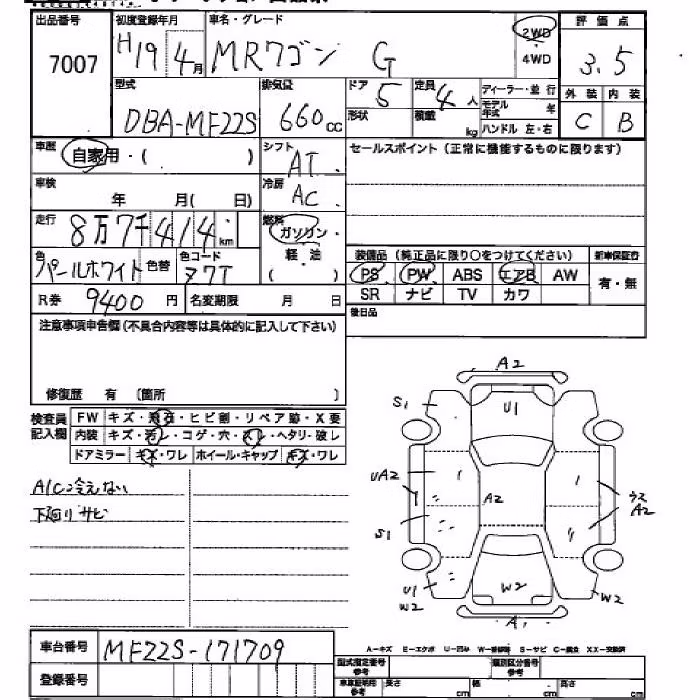 出品番号 初度登録年月 車名・グレード 2WD 評価点
7007 H19 4月 MRワゴン G 4WD 3.5
型式 排気量 ドア 5 定員 4人 ディーラー・並行 外装 内装
DBA-MF22S 660cc 形状 積載 kg モデル年式 年 C B
ハンドル 左・右
車歴 自家用・( ) シフト AT セールスポイント(正常に機能するものに限ります)
車検 年 月( 日) 冷房 AC
走行 8万7千414km 燃料 ガソリン
色 パールホワイト 色替 色コード Z7T 軽油 装備品(純正品に限り○をつけてください) 新車保証書
( ) PS PW ABS エアB AW 有・無
R券 9400円 名変期限 月 日 SR ナビ TV カワ
注意事項申告欄(不具合内容等は具体的に記入して下さい) 後日品
修復歴 有 〔箇所 〕
検査員記入欄 FW キズ・飛石・ヒビ割・リペア跡・X要
内装 キズ・汚レ・コゲ・穴・スレ・ヘタリ・破レ
ドアミラー キズ・ワレ ホイール・キャップ キズ・ワレ
A/C冷えない
下廻りサビ
A2
S1 U1
UA2 A2 ウス A2
S1
U1 W2 W2 W2
A1
車台番号 MF22S-171709
A-キズ E-エクボ U-凹み W-補修跡 S-サビ C-腐食 XX-交換済
登録番号 型式指定番号 参考 類別区分番号 参考
車体証明書 参考 長さ cm 幅 cm 高さ cm